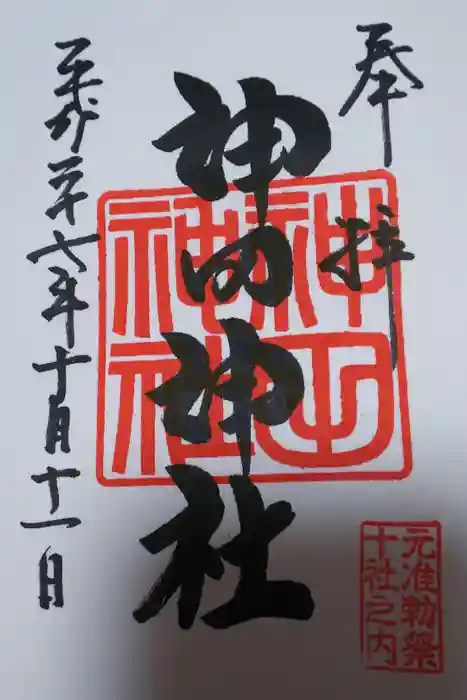 奉拝
神田神社
平成二十六年十月十一日
神田
神社
元准勅祭
十社之内